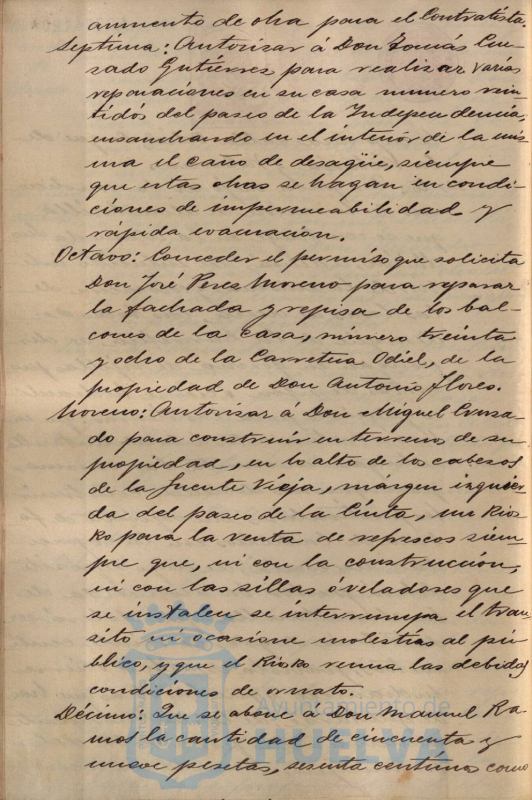 aumento de obra para el Contratista.
Septima: Autorizar á Don Tomás Cru-
zado Gutiérrez para realizar varias
reparaciones en su casa numero vein-
tidós del paseo de la Independencia,
ensanchando en el interior de la mis-
ma el caño de desagüe, siempre
que estas obras se hagan en condi-
ciones de impermeabilidad y
rápida evacuación.
Octavo: Conceder el permiso que solicita
Don José Perez Moreno para reparar
la fachada y repisa de los bal-
cones de la casa, número treinta
y ocho de la Carretera Odiel, de la
propiedad de Don Antonio Flores.
Noveno: Autorizar á Don Miguel Cruza-
do para construir en terreno de su
propiedad, en lo alto de los cabezos
de la Fuente Vieja, margen izquier-
da del paseo de la Cinta, un Kios-
ko para la venta de refrescos siem-
pre que, ni con la construcción,
ni con las sillas ó veladores que
se instalen se interrumpa el tran-
sito ni ocasione molestias al pú-
blico, y que el Kiosko reuna las debidas
condiciones de ornato.
Décimo: Que se abone á Don Manuel Ra-
mos la cantidad de cincuenta y
nueve pesetas, sesenta centimos como
Ayuntamiento de
HUELVA